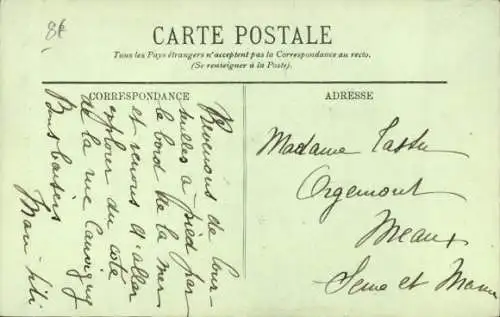 8€
CARTE POSTALE
Tous les Pays étrangers n'acceptent pas la Correspondance au recto.
(Se renseigner à la Poste).
CORRESPONDANCE
ADRESSE
Revenons de Cour-
sulles à pied par
le bord de la mer
et venons d'aller
explorer du côté
de la rue
Bons baisers
Madame Tassu
Orgemont
Meaux
Seine et Marne